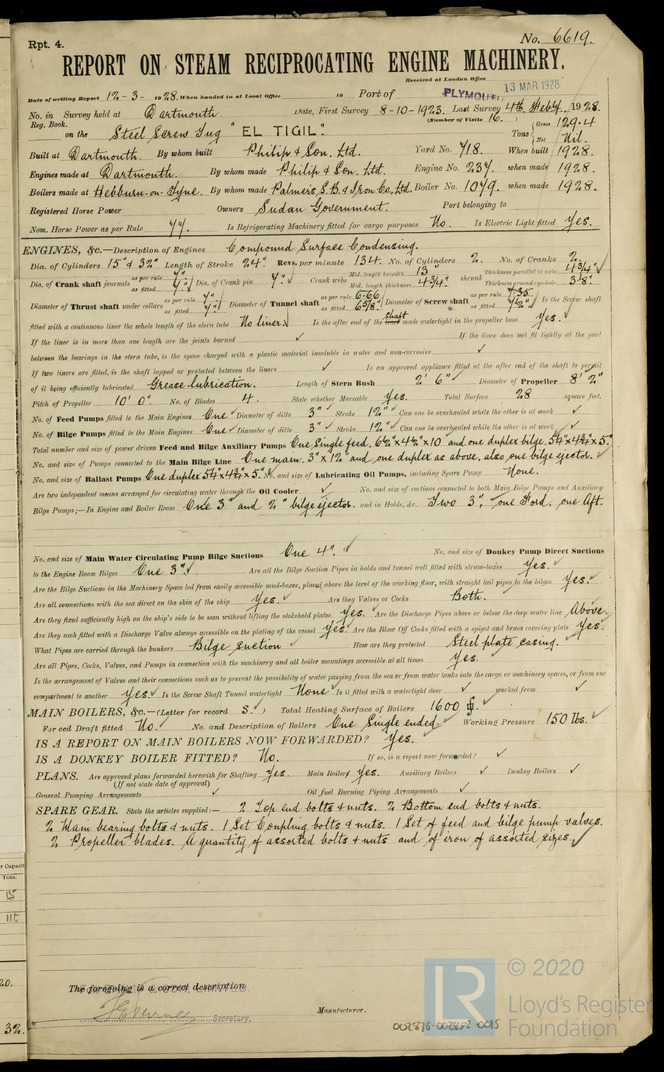 Rpt. 4.
No. 6619.
REPORT ON STEAM RECIPROCATING ENGINE MACHINERY.
Received at London Office 13 MAR 1928
Date of writing Report 12-3-1928. When handed in at Local Office 19 Port of PLYMOUTH
No. in Survey held at Dartmouth. Date, First Survey 8-10-1923. Last Survey 4th Feby. 1928.
Reg. Book. (Number of Visits 16.)
on the Steel Screw Tug "EL TIGIL". Tons Gross 129.4 Net Nil.
Built at Dartmouth. By whom built Philip & Son, Ltd. Yard No. 718. When built 1928.
Engines made at Dartmouth. By whom made Philip & Son. Ltd. Engine No. 237. when made 1928.
Boilers made at Hebburn-on-Tyne. By whom made Palmers S.B. & Iron Co, Ltd. Boiler No. 1079. when made 1928.
Registered Horse Power Owners Sudan Government. Port belonging to
Nom. Horse Power as per Rule 77. Is Refrigerating Machinery fitted for cargo purposes No. Is Electric Light fitted Yes.
ENGINES, &c.—Description of Engines Compound Surface Condensing.
Dia. of Cylinders 15" & 32" Length of Stroke 24" Revs. per minute 134. No. of Cylinders 2. No. of Cranks 2.
Dia. of Crank shaft journals as per rule 7" as fitted 7" Dia. of Crank pin 7" Crank webs Mid. length breadth 13" Mid. length thickness 4 3/4" shrunk Thickness parallel to axis 4 3/4" Thickness around eye-hole 3 1/8"
Diameter of Thrust shaft under collars as per rule 7" as fitted 7" Diameter of Tunnel shaft as per rule 6.66 as fitted 6 7/8" Diameter of Screw shaft as per rule 7.35 as fitted 7 1/2" Is the Screw shaft
fitted with a continuous liner the whole length of the stern tube No liner Is the after end of the shaft made watertight in the propeller boss Yes.
If the liner is in more than one length are the joints burned ✓ If the liner does not fit tightly at the part
between the bearings in the stern tube, is the space charged with a plastic material insoluble in water and non-corrosive ✓
If two liners are fitted, is the shaft lapped or protected between the liners ✓ Is an approved appliance fitted at the after end of the shaft to permit
of it being efficiently lubricated Grease lubrication. Length of Stern Bush 2' 6" Diameter of Propeller 8' 2"
Pitch of Propeller 10' 0" No. of Blades 4. State whether Moveable Yes. Total Surface 28 square feet.
No. of Feed Pumps fitted to the Main Engines One Diameter of ditto 3" Stroke 12" Can one be overhauled while the other is at work ✓
No. of Bilge Pumps fitted to the Main Engines One Diameter of ditto 3" Stroke 12" Can one be overhauled while the other is at work ✓
Total number and size of power driven Feed and Bilge Auxiliary Pumps One Single feed. 6 1/2" x 4 1/2" x 10" and one duplex bilge. 5 1/4" x 4 3/4" x 5"
No. and size of Pumps connected to the Main Bilge Line One main. 3" x 12" and one duplex as above, also one bilge ejector.
No. and size of Ballast Pumps One duplex 5 1/4" x 4 3/4" x 5" No. and size of Lubricating Oil Pumps, including Spare Pump None.
Are two independent means arranged for circulating water through the Oil Cooler ✓ No. and size of suctions connected to both Main Bilge Pumps and Auxiliary
Bilge Pumps;—In Engine and Boiler Room One 3" and 2" bilge ejector. and in Holds, &c. Two 3", one Ford, one Aft.
No. and size of Main Water Circulating Pump Bilge Suctions One 4". No. and size of Donkey Pump Direct Suctions
to the Engine Room Bilges One 3" Are all the Bilge Suction Pipes in holds and tunnel well fitted with strum-boxes Yes.
Are the Bilge Suctions in the Machinery Space led from easily accessible mud-boxes, placed above the level of the working floor, with straight tail pipes to the bilges Yes.
Are all connections with the sea direct on the skin of the ship Yes. Are they Valves or Cocks Both.
Are they fixed sufficiently high on the ship's side to be seen without lifting the stokehold plates Yes. Are the Discharge Pipes above or below the deep water line Above.
Are they each fitted with a Discharge Valve always accessible on the plating of the vessel Yes. Are the Blow Off Cocks fitted with a spigot and brass covering plate Yes.
What Pipes are carried through the bunkers Bilge suction How are they protected Steel plate casing.
Are all Pipes, Cocks, Valves, and Pumps in connection with the machinery and all boiler mountings accessible at all times Yes.
Is the arrangement of Valves and their connections such as to prevent the possibility of water passing from the sea or from water tanks into the cargo or machinery spaces, or from one
compartment to another Yes. Is the Screw Shaft Tunnel watertight None. Is it fitted with a watertight door ✓ worked from ✓
MAIN BOILERS, &c.—(Letter for record S.) Total Heating Surface of Boilers 1600
Forced Draft fitted No. No. and Description of Boilers One Single ended. Working Pressure 150 lbs.
IS A REPORT ON MAIN BOILERS NOW FORWARDED? Yes.
IS A DONKEY BOILER FITTED? No. If so, is a report now forwarded? ✓
PLANS. Are approved plans forwarded herewith for Shafting Yes. Main Boilers Yes. Auxiliary Boilers ✓ Donkey Boilers ✓
(If not state date of approval)
General Pumping Arrangements ✓ Oil fuel Burning Piping Arrangements ✓
SPARE GEAR. State the articles supplied:— 2 Top end bolts & nuts. 2 Bottom end bolts & nuts.
2 Main bearing bolts & nuts. 1 Set Coupling bolts & nuts. 1 Set of feed and bilge pump valves.
2 Propeller blades. A quantity of assorted bolts & nuts and of iron of assorted sizes.
The foregoing is a correct description
Secretary.
Manufacturer.
002876-002882-0015
© 2020
Lloyd's Register
Foundation
LR